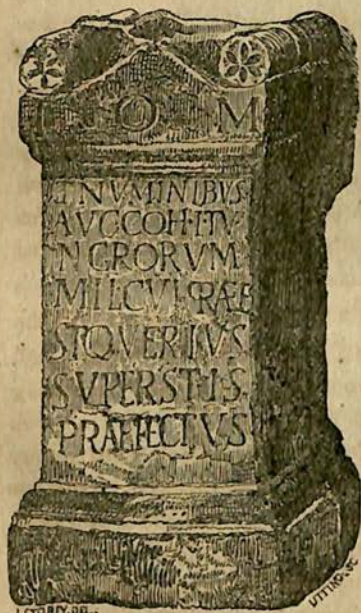 I O M
TNVMINIBVS
AVGCOH·I·TV
NGRORVM
MILCVI PRÆE
STQ·VERIVS
SVPERST·I·S
PRAEFECTVS
UTTING SC